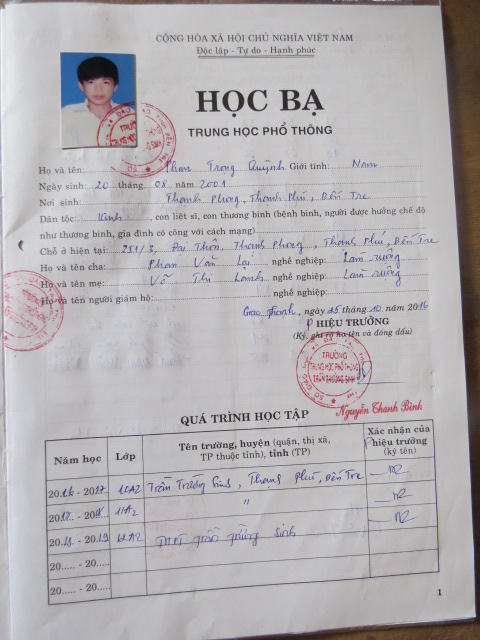 CỘNG HÒA XÃ HỘI CHỦ NGHĨA VIỆT NAM
Độc lập - Tự do - Hạnh phúc
HỌC BẠ
TRUNG HỌC PHỔ THÔNG
Họ và tên: Phan Trọng Quỳnh Giới tính: Nam
Ngày sinh: 20 tháng 08 năm 2001
Nơi sinh Thạnh Phong, Thạnh Phú, Bến Tre
Dân tộc: Kinh, con liệt sĩ, con thương binh (bệnh binh, người được hưởng chế độ
như thương binh, gia đình có công với cách mạng)
Chỗ ở hiện tại: 251/3, Đại Thôn, Thạnh Phong, Thạnh Phú, Bến Tre
Họ và tên cha: Phan Văn Lại nghề nghiệp: Làm ruộng
Họ và tên mẹ: Võ Thị Lành nghề nghiệp: Làm ruộng
Họ và tên người giám hộ: nghề nghiệp:
Giao Thạnh, ngày 25 tháng 10 năm 2016
P HIỆU TRƯỞNG
(Ký, ghi rõ họ tên và đóng dấu)
TRƯỜNG
TRUNG HỌC PHỔ THÔNG
TRẦN TRƯỜNG SINH
Nguyễn Thanh Bình
QUÁ TRÌNH HỌC TẬP
Năm học Lớp Tên trường, huyện (quận, thị xã, TP thuộc tỉnh), tỉnh (TP) Xác nhận của hiệu trưởng (ký tên)
2016 - 2017 10A2 Trần Trường Sinh, Thạnh Phú, Bến Tre
2017 - 2018 11A2 "
2018 - 2019 12A2 THPT Trần Trường Sinh
20..... - 20.....
20..... - 20.....
1